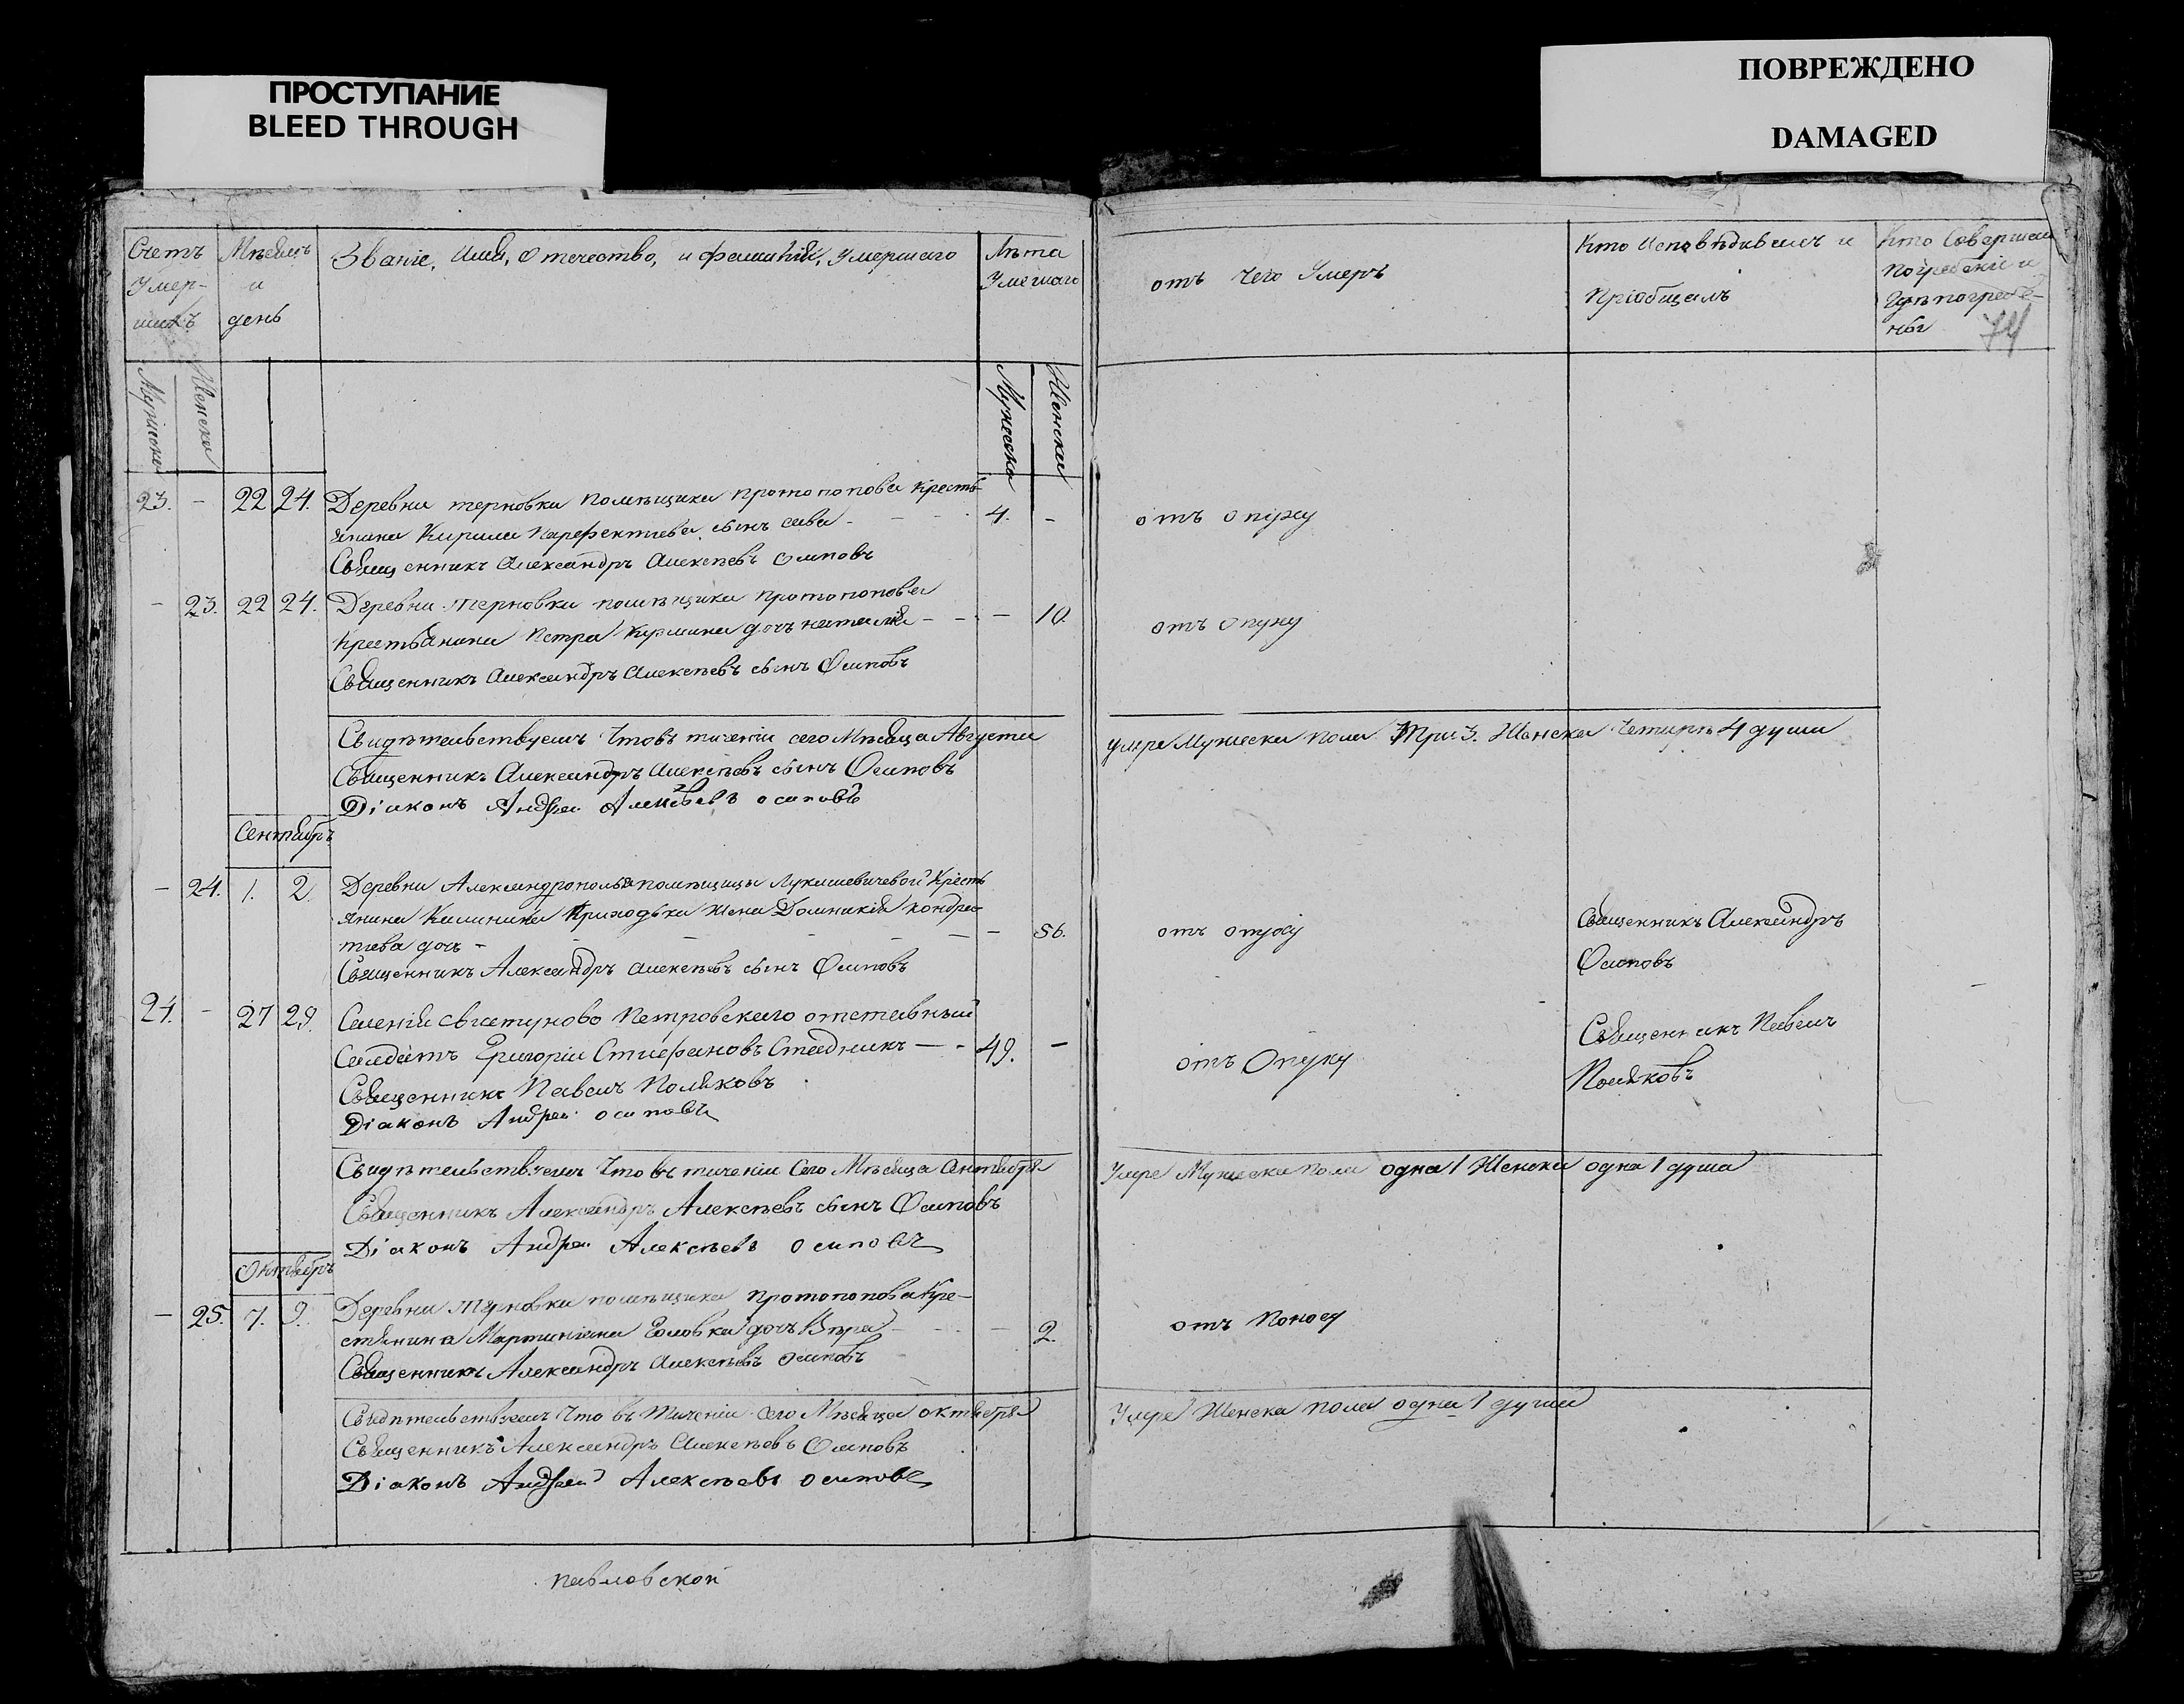 ПРОСТУПАНИЕ
BLEED THROUGH
ПОВРЕЖДЕНО
DAMAGED
Счетъ
Умер-
шихъ
Мѣсяцъ
и
день
Званіе, Имя, Отечество, и фамилія, Умершаго
Лѣта
Умершаго
отъ чего Умеръ
Кто Исповѣдивалъ и
Пріобщалъ
Кто Совершалъ
погребеніе и
Гдѣ погребе-
ны
74
Мужеска
Женска
Мужеска
Женска
23. - 22 24. Деревни терновки помѣщика протопопова кресть-
янина Кирила Парефентиева сынъ сава - 4. -
отъ
Священникъ Александръ Алексѣевъ Осиповъ
- 23. 22 24. Деревни терновки помѣщика протопопова
крестьянина Петра дочь наталія - - 10.
отъ опуху
Священникъ Александръ Алексѣевъ сынъ Осиповъ
Свидѣтельствуемъ Что въ теченіи сего Мѣсяца Августа
умре Мужеска пола Три 3. Женска Четирѣ 4 души
Священникъ Александръ Алексѣевъ сынъ Осиповъ
Діаконъ Андрей Алексѣевъ осиповъ
Сентябръ
- 24. 1. 2. Деревни Александрополья помѣщицы Лукашевичевой Кресть
янина Калиника Приходька жена Домникія кондра-
тиева дочь - - 56.
отъ
Священникъ Александръ
Осиповъ
Священникъ Александръ Алексѣевъ сынъ Осиповъ
24. - 27 29. Селенія свистуново Петровскаго отставный
Салдатъ Григорій Стиефановъ Стадникъ - 49. -
отъ Опуху
Священникъ Павелъ
Поляковъ
Священникъ Павелъ Поляковъ
Діаконъ Андрей осиповъ
Свидѣтельствуемъ Что въ теченіи Сего Мѣсяца Сентября
Умре Мужеска пола одна 1 Женска одна 1 душа
Священникъ Александръ Алексѣевъ сынъ Осиповъ
Діаконъ Андрей Алексѣевъ осиповъ
Октябръ
- 25. 7. 9. Деревни Терновки помѣщика протопопова Кре-
стянина Мартиніана Головка дочь Вѣра - 2.
отъ Поносу
Священникъ Александръ Алексѣевъ Осиповъ
Свидѣтельствуемъ Что въ Теченіи Сего Мѣсяца октября
Умре Женска пола одна 1 душа
Священникъ Александръ Алексѣевъ Осиповъ
Діаконъ Андрей Алексѣевъ осиповъ
павловской